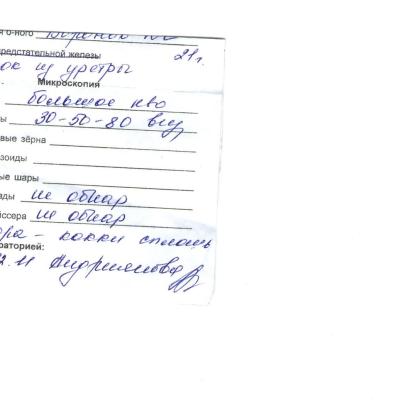 я б-ного
предстательной железы 21г.
ок из уретры
Микроскопия
большое кво
ы 30-50-80 в п/з
вые зёрна
зоиды
ые шары
ады не обнар
йссера не обнар
ра - кокки сплошь
раторией:
2.11 Андриянова